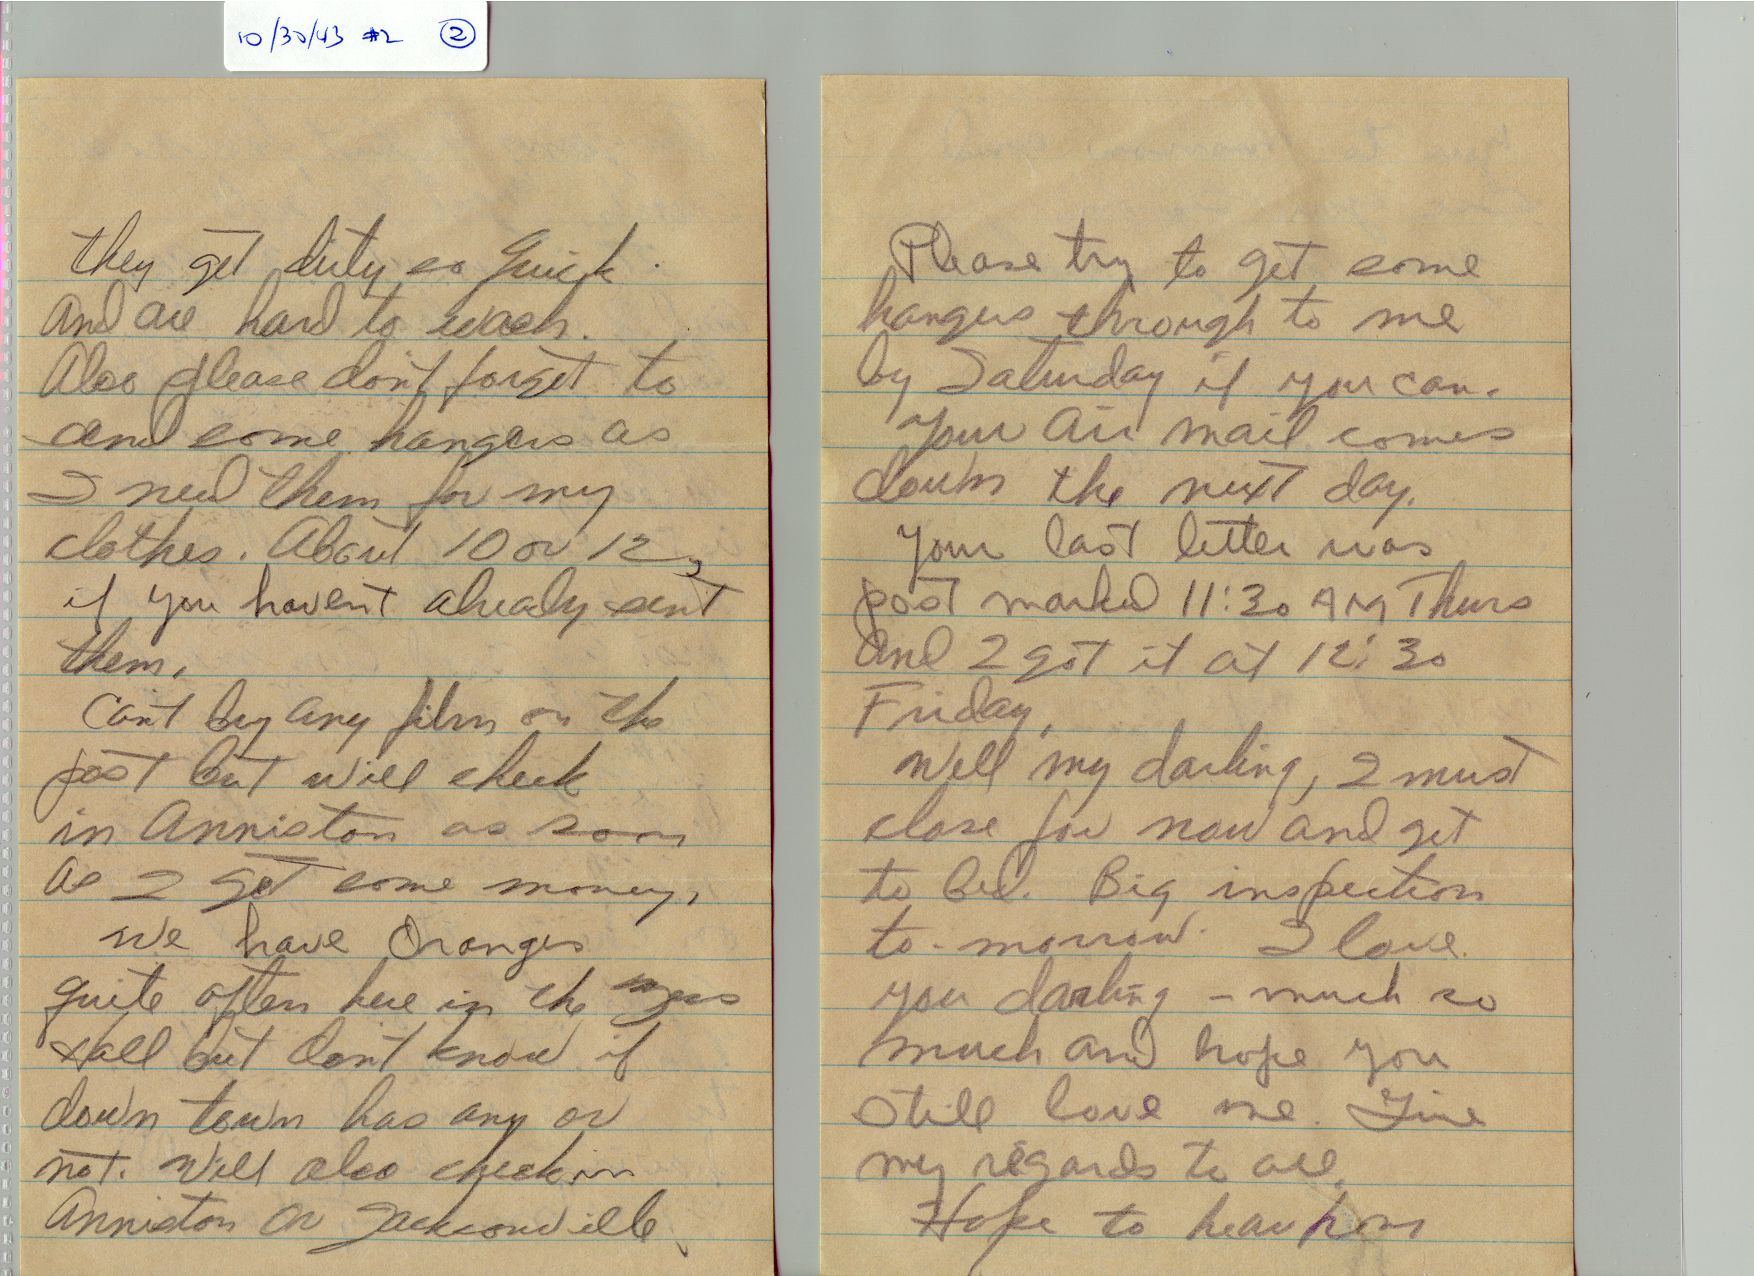 10/30/43 #2 2
they get dirty so quick
and are hard to wash.
Also please don't forget to
send some hangers as
I need them for my
clothes. About 10 or 12,
if you haven't already sent
them.
Can't buy any film on the
post but will check
in Anniston as soon
as I get some money.
We have Oranges
quite often here in the mess
hall but don't know if
down town has any or
not. Will also check in
Anniston or Jacksonville.
Please try to get some
hangers through to me
by Saturday if you can.
Your Air mail comes
down the next day.
Your last letter was
post marked 11:30 AM Thurs
and I got it at 12:30
Friday.
Well my darling, I must
close for now and get
to bed. Big inspection
to-morrow. I love
you darling - much so
much and hope you
still love me. Give
my regards to all.
Hope to hear from